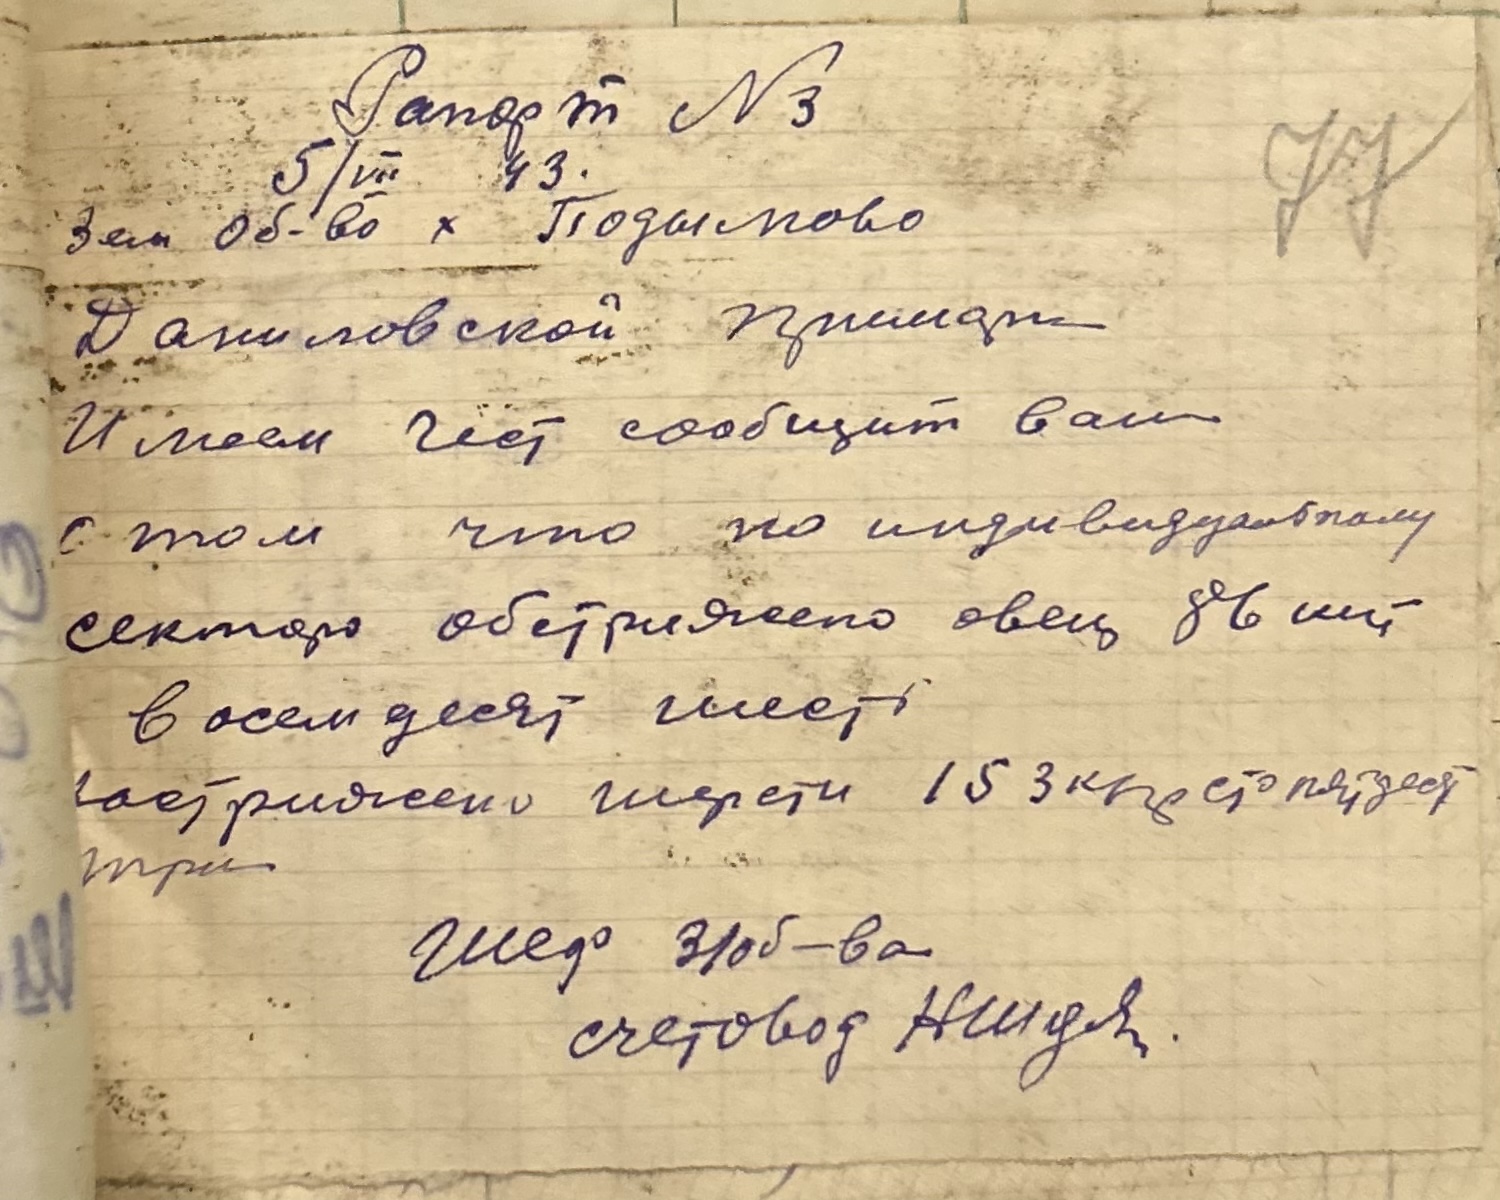 Рапорт N 3
5/VII 43.
77
Зем Об-во х Подымово
Даниловской примэри
Имеем чест сообщит вам
о том что по индивидуальному
сектору обстрижено овец 86 шт
восемдесят шесть
настрижено шерсти 153 кгр сто пятдесят
три
Шеф з/об-ва
счетовод